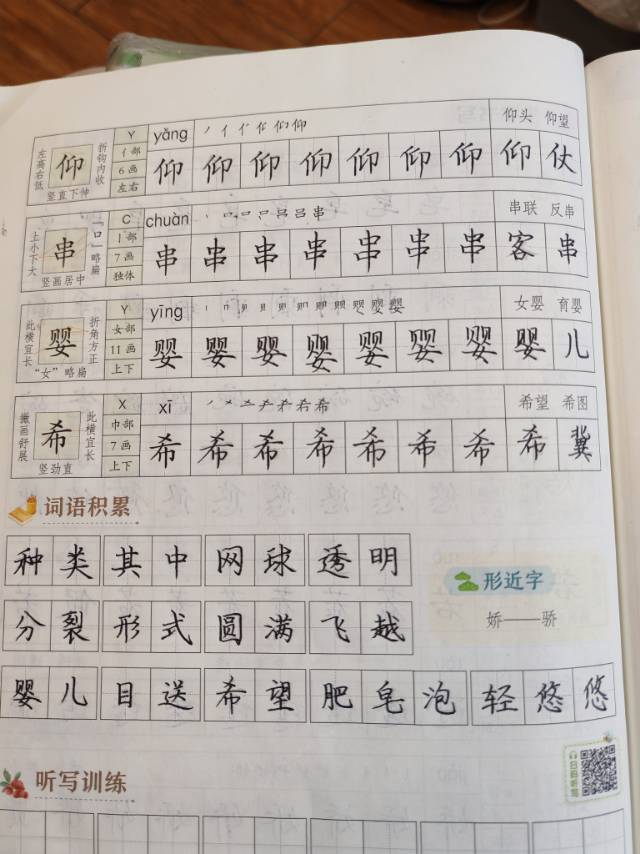 Y yǎng 仰头 仰望
左高右低 仰 折钩内收 竖直下伸
亻部 6画 左右
仰 仰 仰 仰 仰 仰 仰 仰 仗
C chuàn 串联 反串
上小下大 串 “口”略扁 竖画居中
丨部 7画 独体
串 串 串 串 串 串 串 客 串
Y yīng 女婴 育婴
此横宜长 婴 折角方正 “女”略扁
女部 11画 上下
婴 婴 婴 婴 婴 婴 婴 婴 儿
X xī 希望 希图
撇画舒展 希 此横宜长 竖劲直
巾部 7画 上下
希 希 希 希 希 希 希 希 冀
词语积累
种类 其中 网球 透明
形近字
娇——骄
分裂 形式 圆满 飞越
婴儿 目送 希望 肥皂泡 轻悠悠
听写训练
扫码听写